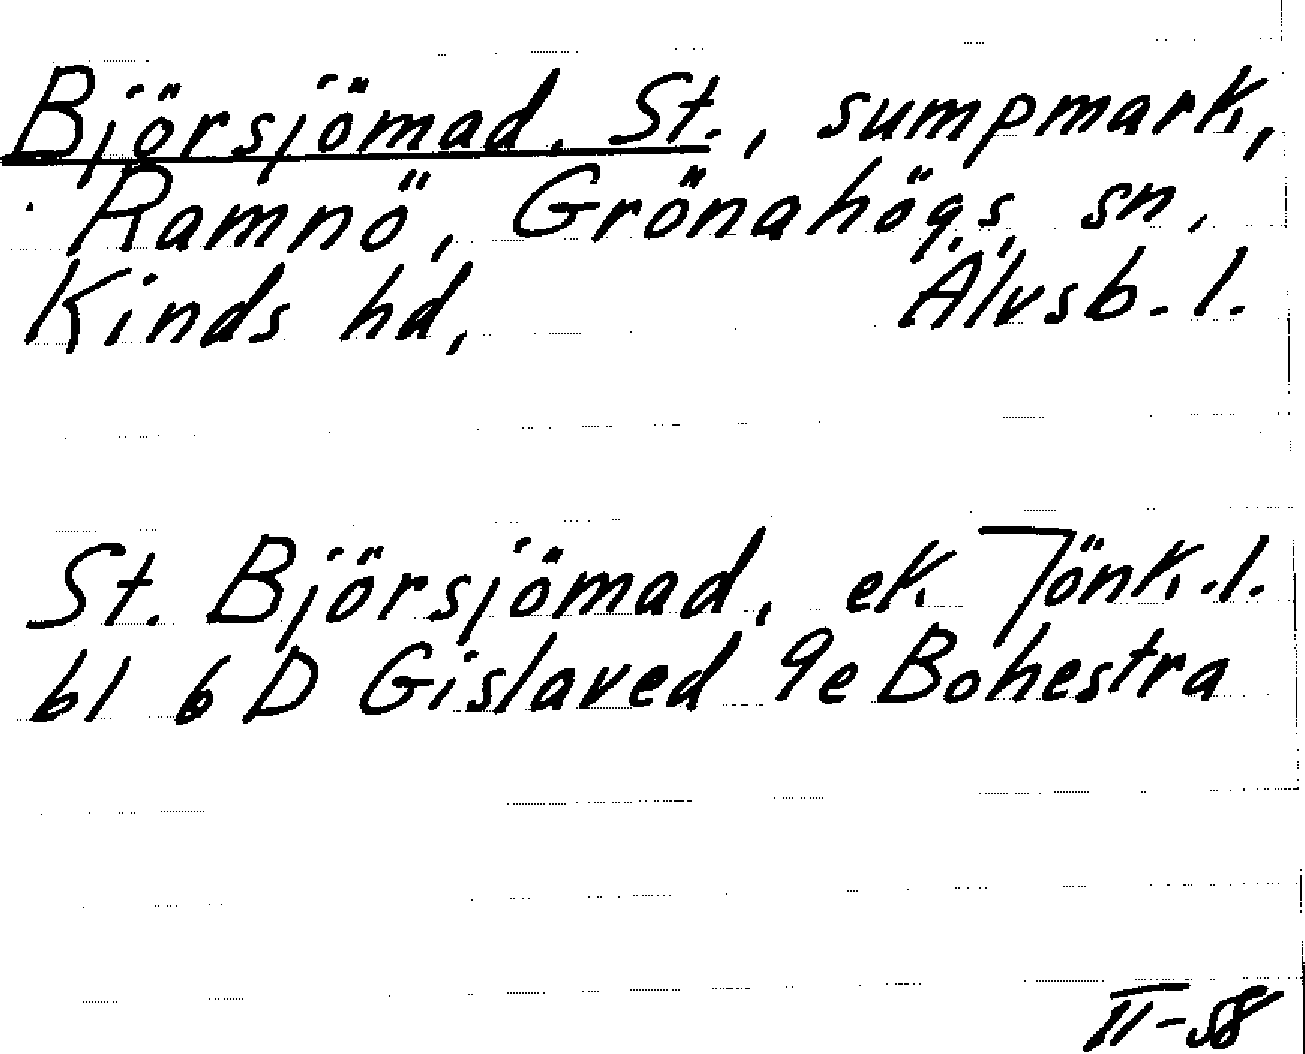 Björsjömad, St., sumpmark,
Ramnö, Grönahögs sn,
Kinds hd, Älvsb. l.
St. Björsjömad, ek Jönk. l.
bl 6 D Gislaved 9e Bohestra
II-58